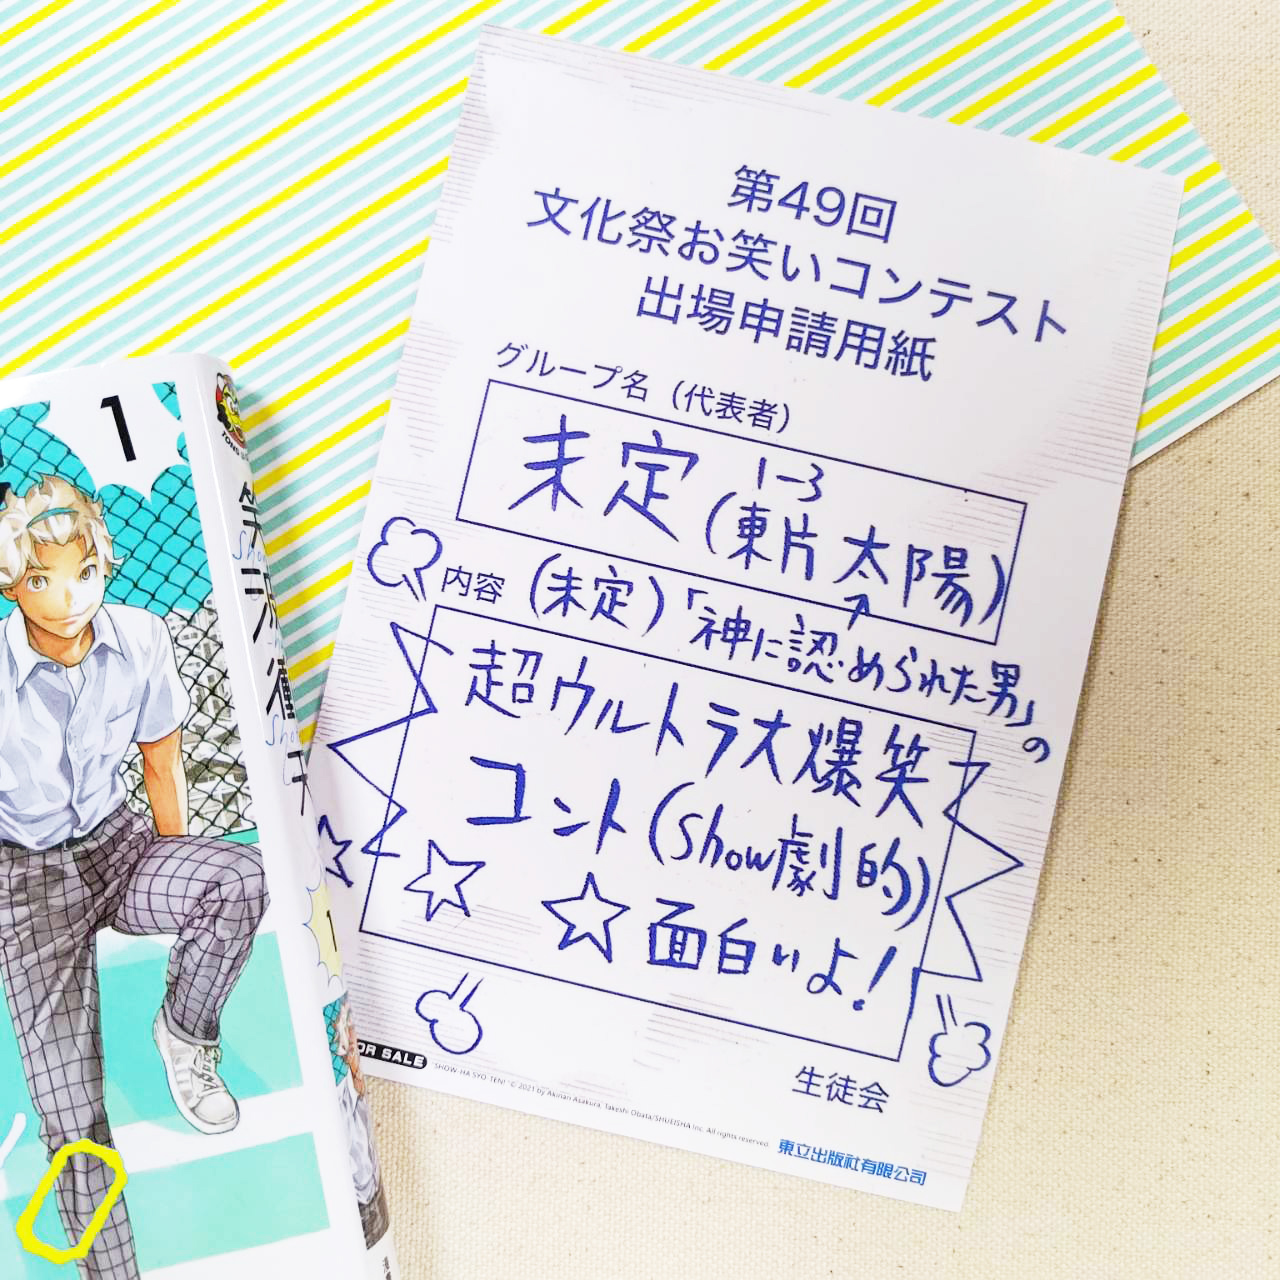 第49回
文化祭お笑いコンテスト
出場申請用紙
グループ名（代表者）
1-3
未定(東片太陽)
内容 (未定)「神に認められた男」の
超ウルトラ大爆笑
コント(Show劇的)
面白いよ!
生徒会
OR SALE
"SHOW-HA SYO-TEN!" © 2021 by Akinari Asakura, Takeshi Obata/SHUEISHA Inc. All rights reserved.
東立出版社有限公司
1
1